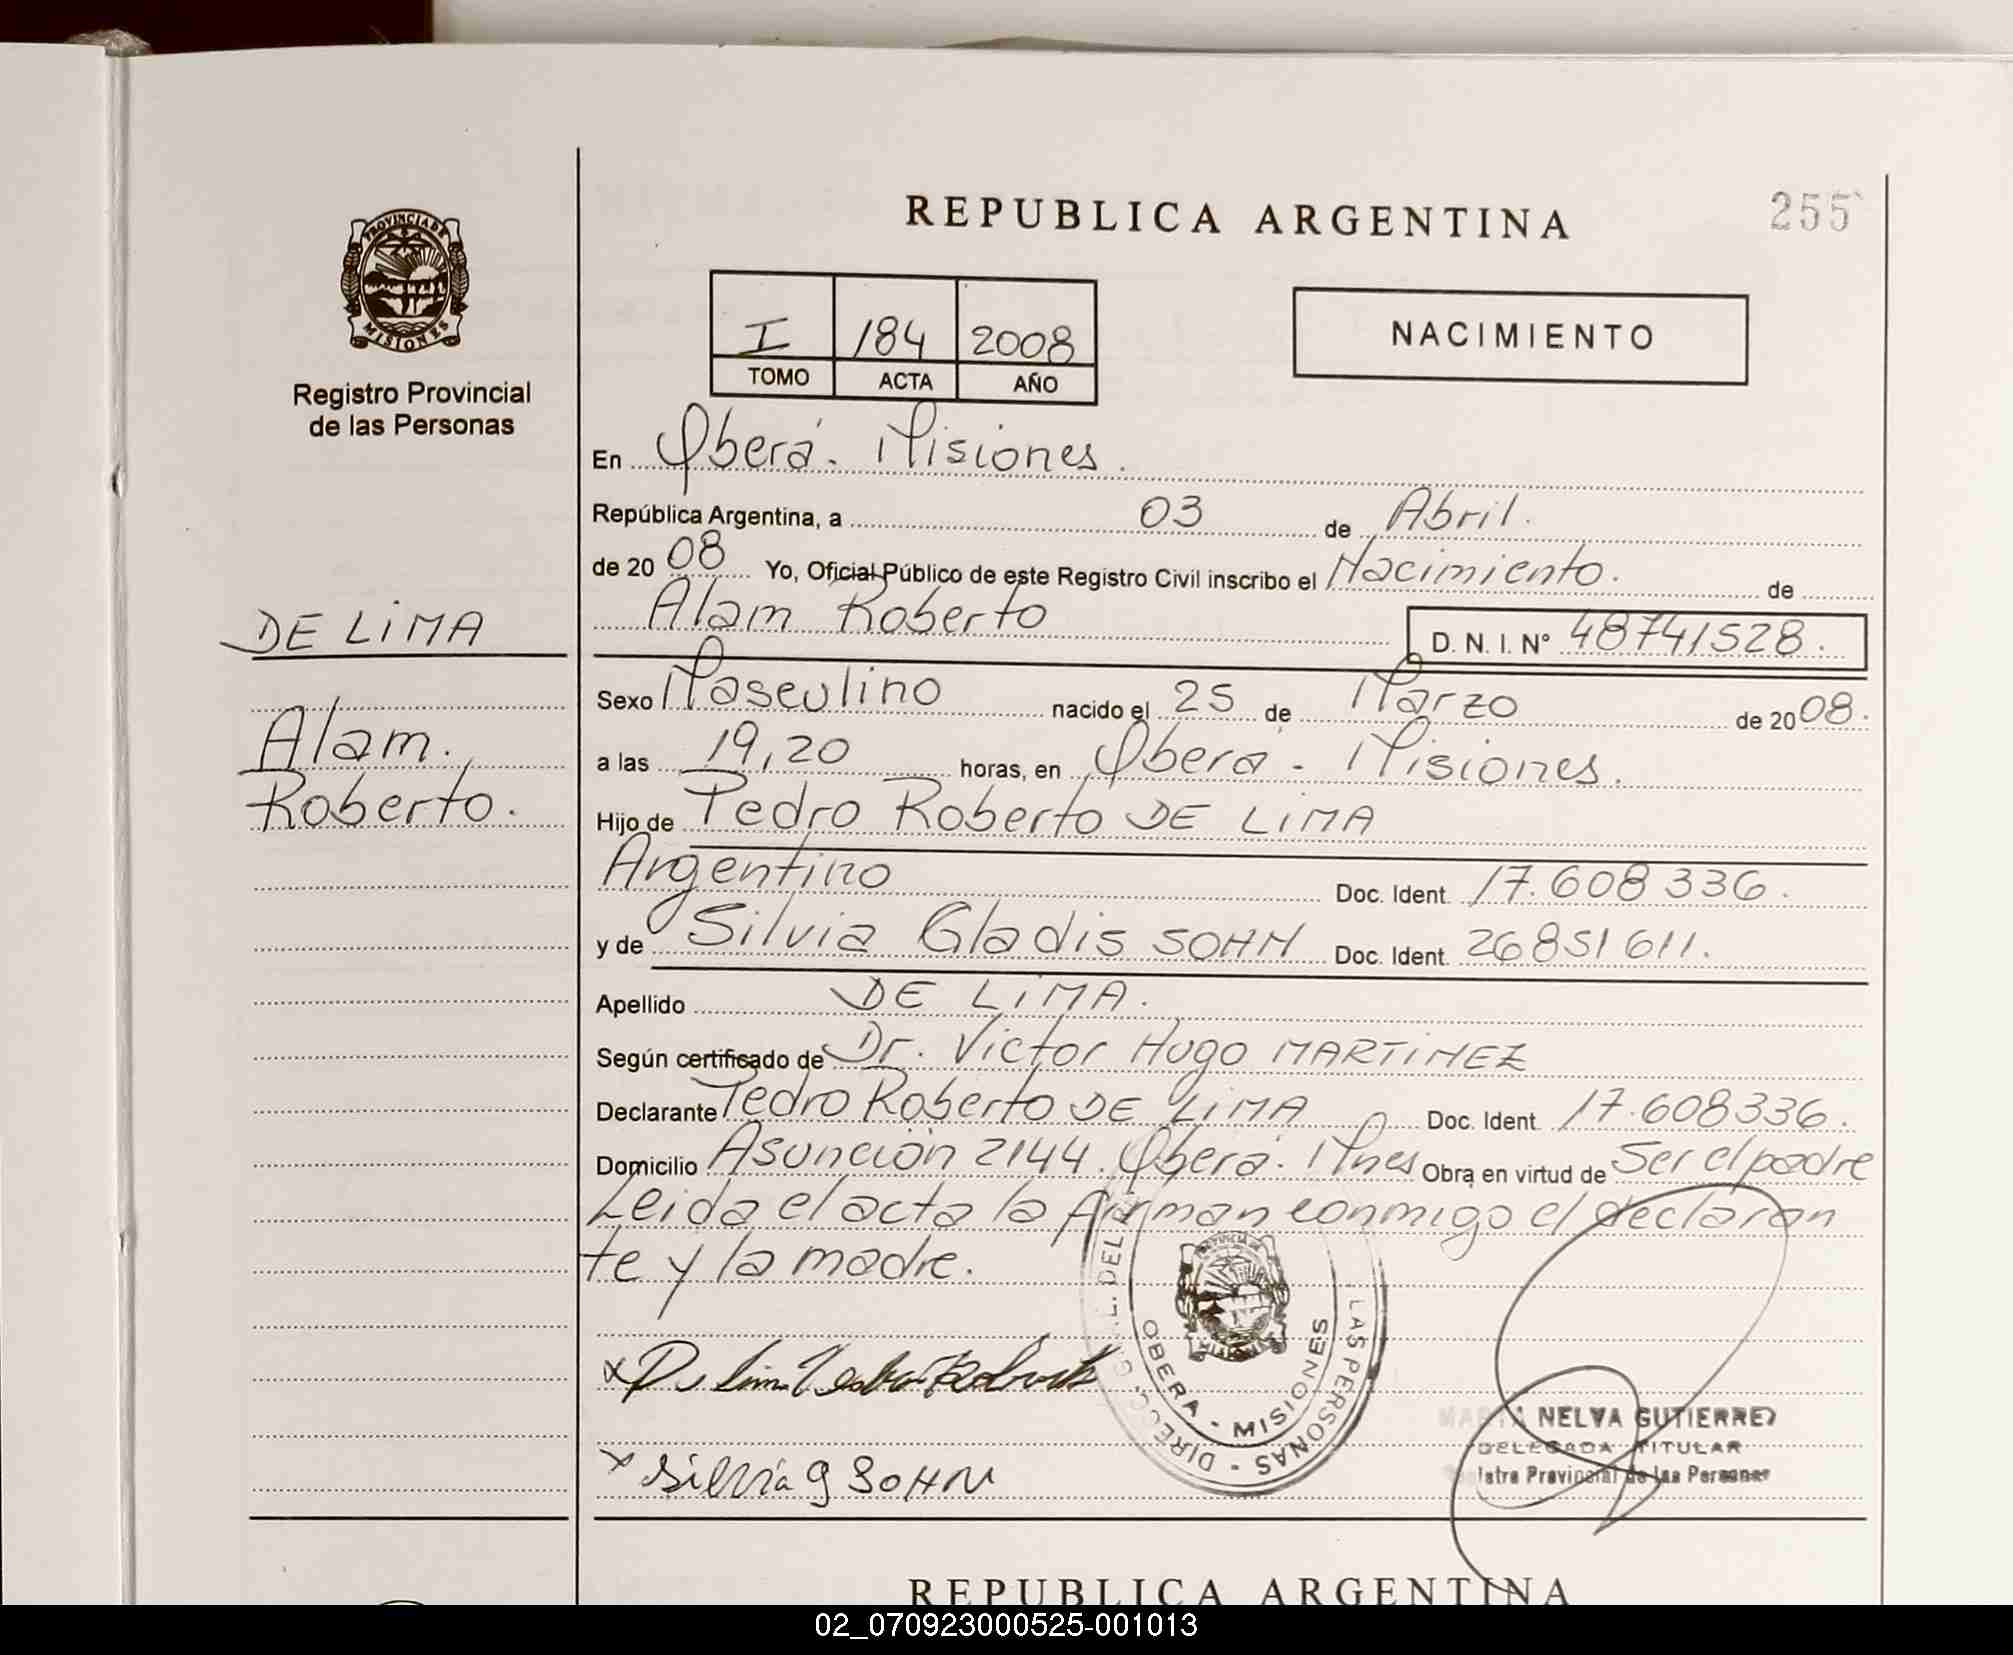 REPUBLICA ARGENTINA
255
PROVINCIA DE
MISIONES
Registro Provincial
de las Personas
I 184 2008
TOMO ACTA AÑO
NACIMIENTO
En Oberá. Misiones.
República Argentina, a 03 de Abril.
de 20 08 Yo, Oficial Público de este Registro Civil inscribo el Nacimiento. de
Alam Roberto D. N. I. N° 48741528.
DE LIMA
Alam.
Roberto.
Sexo Masculino nacido el 25 de Marzo de 20 08.
a las 19,20 horas, en Oberá - Misiones.
Hijo de Pedro Roberto DE LIMA
Argentino Doc. Ident. 17.608336.
y de Silvia Gladis SOHN Doc. Ident. 26851611.
Apellido DE LIMA.
Según certificado de Dr. Victor Hugo MARTINEZ
Declarante Pedro Roberto DE LIMA Doc. Ident. 17.608336.
Domicilio Asunción 2144. Oberá. Mnes Obra en virtud de Ser el padre
Leida el acta la firman conmigo el declaran
te y la madre.
x De lima Roberto
x Silvia g SOHN
LAS PERSONAS - DIRECC
OBERA - MISIONES
NELVA GUTIERREZ
DELEGADA TITULAR
Provincial de las Personas
REPUBLICA ARGENTINA
02_070923000525-001013